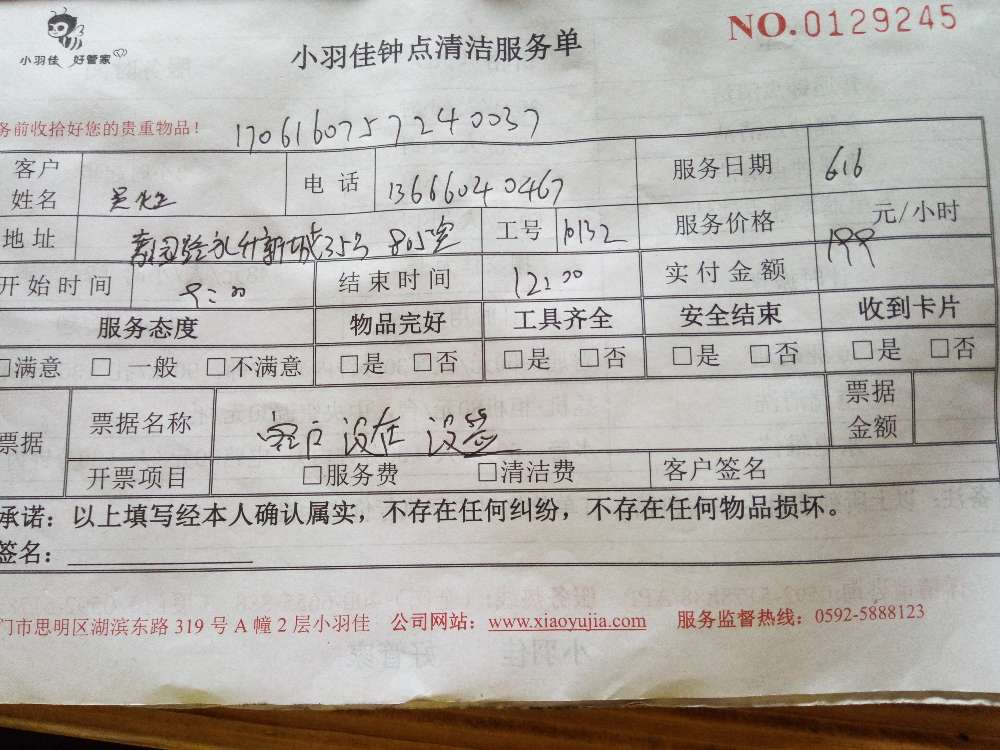 小羽佳 好管家
小羽佳钟点清洁服务单
NO.0129245
务前收拾好您的贵重物品！ 170616075724 0037
客户姓名 电话 13666040467 服务日期 616
地址 永升新城35号 805室 工号 10132 服务价格 元/小时
开始时间 9:00 结束时间 12:00 实付金额 199
服务态度 物品完好 工具齐全 安全结束 收到卡片
□满意 □ 一般 □不满意 □是 □否 □是 □否 □是 □否 □是 □否
票据 票据名称 客户没在 没签 票据金额
开票项目 □服务费 □清洁费 客户签名
承诺：以上填写经本人确认属实，不存在任何纠纷，不存在任何物品损坏。
签名：
门市思明区湖滨东路 319 号 A 幢 2 层小羽佳 公司网站：www.xiaoyujia.com 服务监督热线：0592-5888123